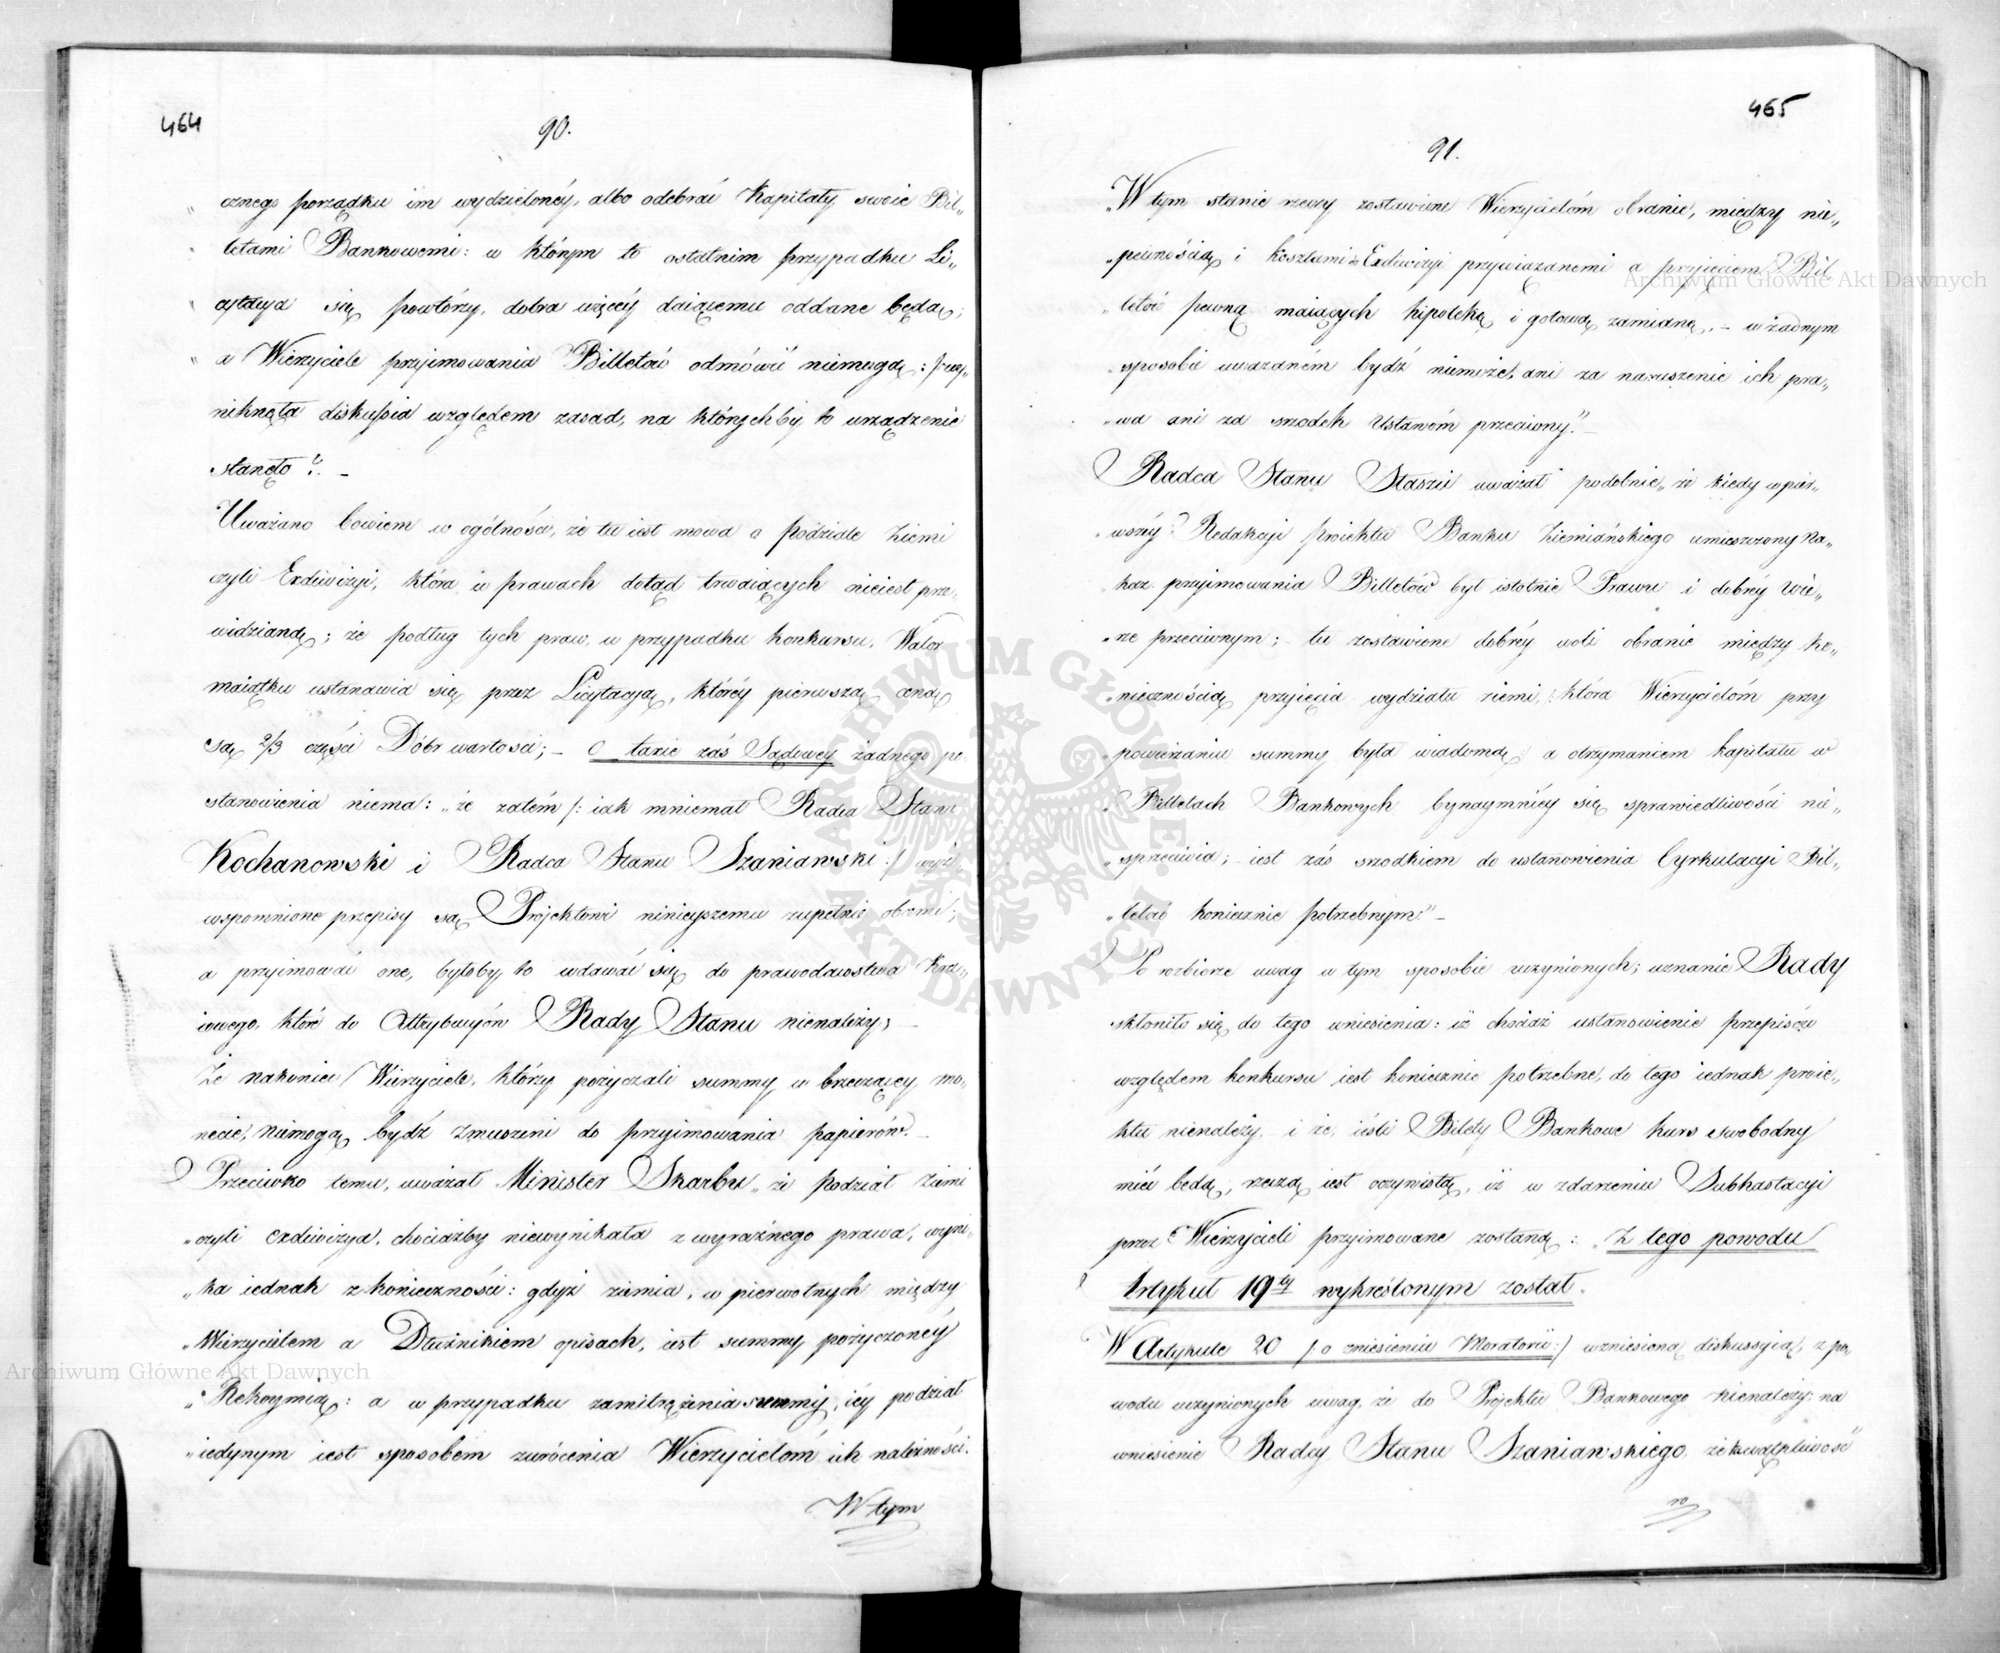 464
90.
„cznego porządku im wydzielonéy, albo odebrać Kapitały swoie Bil„
„letami Bankowemi: w którym to ostatnim przypadku Li„
„cytacya się powtórzy, dobra więcéy daiącemu oddane będą;
„a Wierzyciele przyimowania Billetów odmówić niemogą: / wy„
niknęła diskussia względem zasad, na którychby to urządzenie
stanęło“? –
Uważano bowiem w ogólności, że tu iest mowa o podziale Ziemi
czyli Exdiwizyi, która w prawach dotąd trwaiących nieiest prze„
widzianą; że podług tych praw, w przypadku konkursu, Walor
maiątku ustanawia się przez Licytacyą, któréy pierwszą ceną
są 2/3 części Dóbr wartości; – O taxie zaś Sądowey żadnego po
stanowienia niema: „że zatém /: iak mniemał Radca Stanu
Kochanowski i Radca Stanu Szaniawski :/ wyż„
wspomnione przepisy są Projektowi ninieyszemu zupełnie obcemi;
a przyimować one, byłoby to wdawać się do prawodawstwa Kra„
iowego, które do Attrybucyów Rady Stanu nienależy; –
Że nakoniec Wierzyciele, którzy pożyczali summy w brzęczącey mo„
necie, niemogą bydź zmuszeni do przyimowania papierów. –
Przeciwko temu, uważał Minister Skarbu „że podział ziemi
„czyli exdiwizya, chociażby niewynikała z wyraźnego prawa, wyni„
„ka iednak z konieczności: gdyż ziemia, w pierwotnych między
„Wierzycielem a Dłużnikiem opisach, iest summy pożyczonéy
„Rekoymią: a w przypadku zamitrężenia summy, iéy podział
„iedynym iest sposobem zwrócenia Wierzycielom ich należności.
W tym
465
91.
„W tym stanie rzeczy zostawione Wierzycielóm obranie, między nie„
„pewnością i kosztami do Exdiwizyi przywiązanemi a przyięciem Bil
„letów pewną maiących hipotekę i gotową zamianę, – w żadnym
„sposobie uważaném bydź niemoże, ani za naruszenie ich pra„
„wa ani za srzodek Ustawóm przeciwny.“ –
Radca Stanu Staszic uważał podobnie „że kiedy w pier„
„wszéy Redakcyi proiektu Banku Ziemiańskiego umieszczony na„
„kaz przyimowania Billetów był istotnie Prawu i dobréy wie„
„rze przeciwnym; – tu zostawione dobréy woli obranie między ko„
„niecznością przyięcia wydziału ziemi, która Wierzycielóm przy
„powierzaniu summy była wiadomą, a otrzymaniem kapitału w
„Billetach Bankowych bynaymniéy się sprawiedliwości nie„
„sprzeciwia; – iest zaś srzodkiem do ustanowienia Cyrkulacyi Bil„
„letów koniecznie potrzebnym.“ –
Po rozbiorze uwag w tym sposobie uczynionych; uznanie Rady
skłoniło się do tego wniesienia: iż chociaż ustanowienie przepisów
względem konkursu iest koniecznie potrzebne, do tego iednak proie„
ktu nienależy, i że, ieśli Bilety Bankowe kurs swobodny
mieć będą, rzeczą iest oczywistą, iż w zdarzeniu Subhastacyi
przez Wierzycieli przyimowane zostaną: Z tego powodu
Artykuł 19ty wykreślonym został.
W Artykule 20 /: o zniesieniu Moratorii :/ wzniesioną diskussyią, z po„
wodu uczynionych uwag, że do Projektu Bankowego nienależy; na
wniesienie Radcy Stanu Szaniawskiego, że wątpliwość
w
Archiwum Główne Akt Dawnych
Archiwum Główne Akt Dawnych
ARCHIWUM GŁÓWNE AKT DAWNYCH